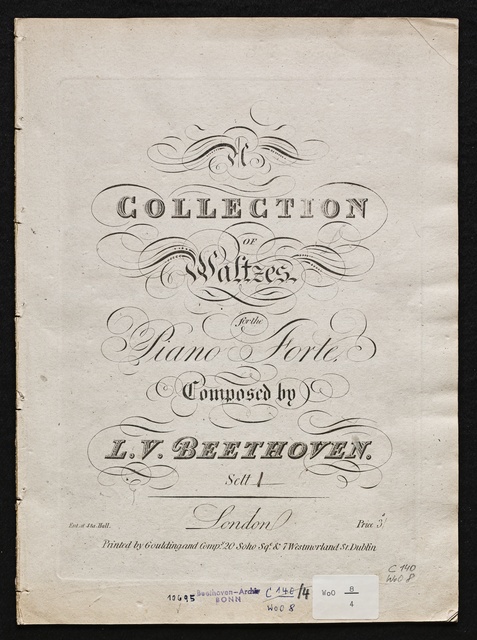 A
COLLECTION
OF
Waltzes
for the
Piano Forte,
Composed by
L.V. BEETHOVEN.
Sett 1
London
Ent. at Sta. Hall.
Price 3
Printed by Goulding and Compy. 20 Soho Sqe. & 7 Westmorland St. Dublin
C 140
WoO 8
10695
Beethoven-Archiv
BONN
C 140/4
WoO 8
WoO 8
4